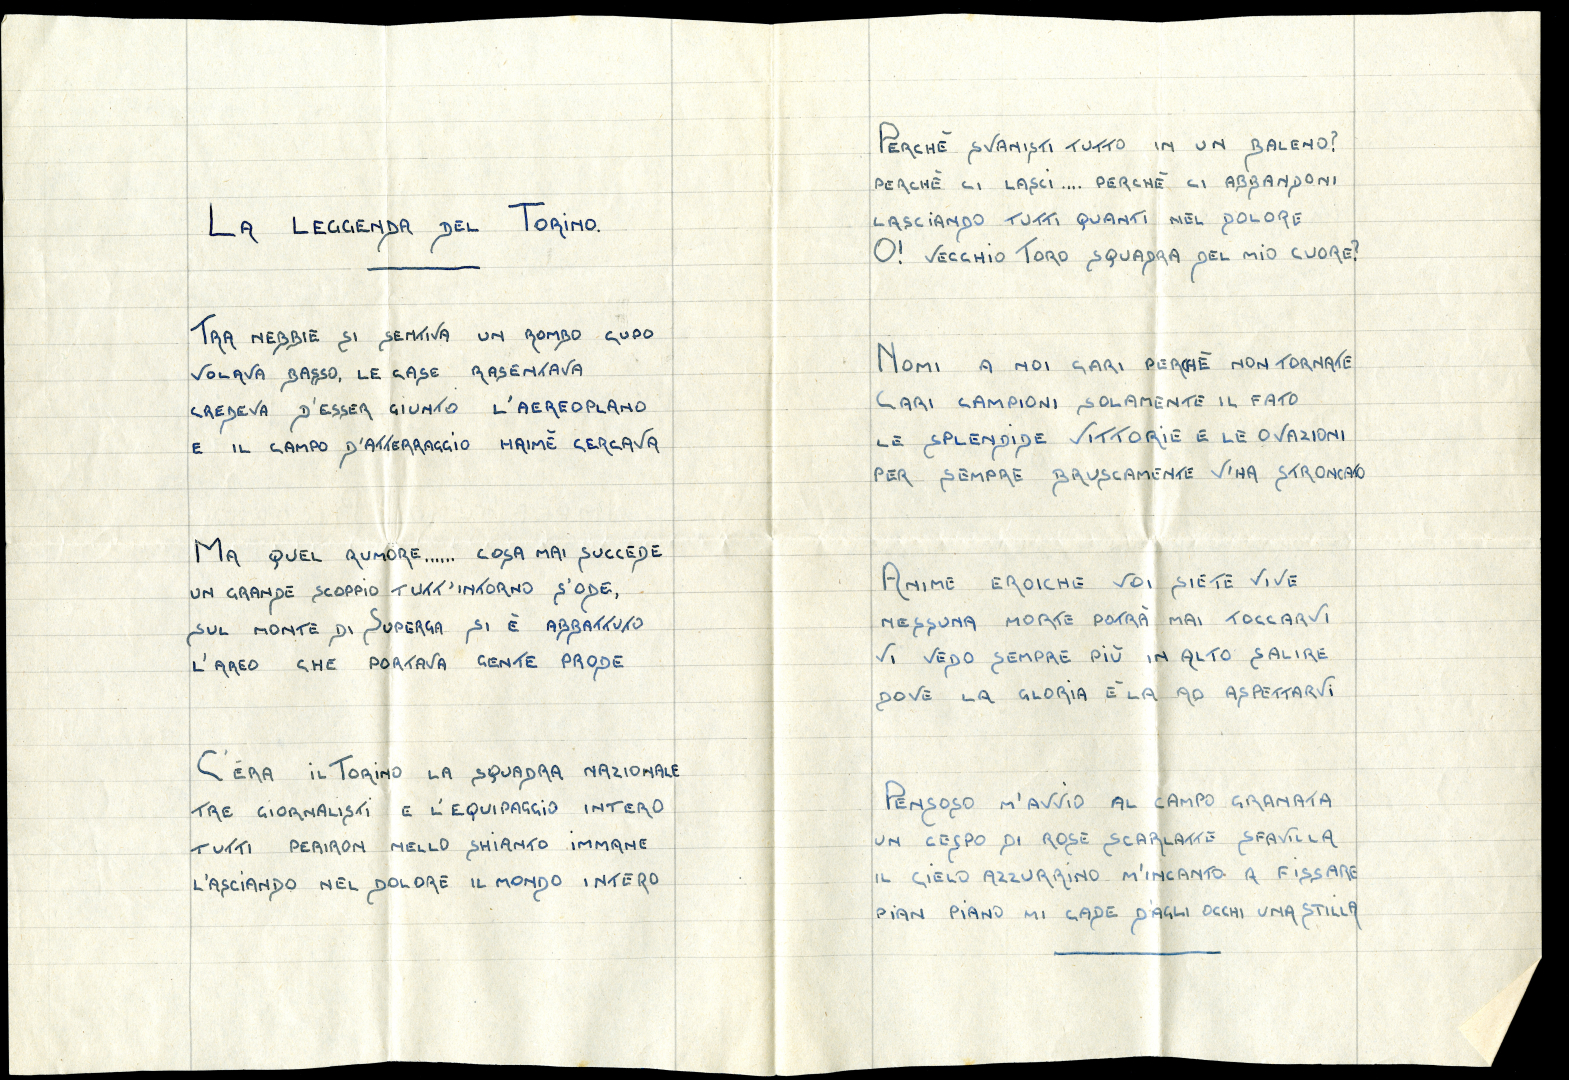 La leggenda del Torino.
Tra nebbie si sentiva un rombo cupo
volava basso, le case rasentava
credeva d'esser giunto l'aereoplano
e il campo d'atterraggio haimè cercava
Ma quel rumore...... cosa mai succede
un grande scoppio tutt'intorno s'ode,
sul monte di Superga si è abbattuto
l'areo che portava gente prode
C'èra il Torino la squadra nazionale
tre giornalisti e l'equipaggio intero
tutti periron nello shianto immane
l'asciando nel dolore il mondo intero
Perchè svanisti tutto in un baleno?
perchè ci lasci.... perchè ci abbandoni
lasciando tutti quanti nel dolore
O! vecchio Toro squadra del mio cuore?
Nomi a noi cari perchè non tornate
Cari campioni solamente il fato
le splendide vittorie e le ovazioni
per sempre bruscamente v'ha stroncato
Anime eroiche voi siete vive
nessuna morte potrà mai toccarvi
vi vedo sempre più in alto salire
dove la gloria è la ad aspettarvi
Pensoso m'avvio al campo granata
un cespo di rose scarlatte sfavilla
il cielo azzurrino m'incanto a fissare
pian piano mi cade d'agli occhi una stilla